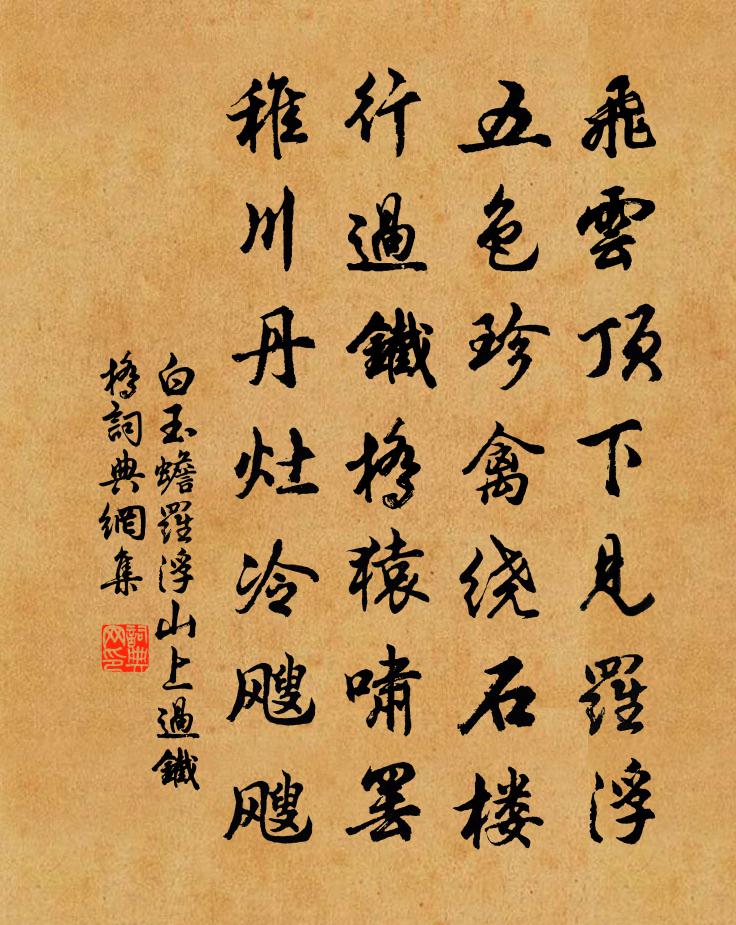 飛雲頂下見羅浮
五色珍禽绕石楼
行過鐵橋猿嘯罢
稚川丹灶冷飕飕
白玉蟾羅浮山上過鐵
橋詞典網集
詞典网印